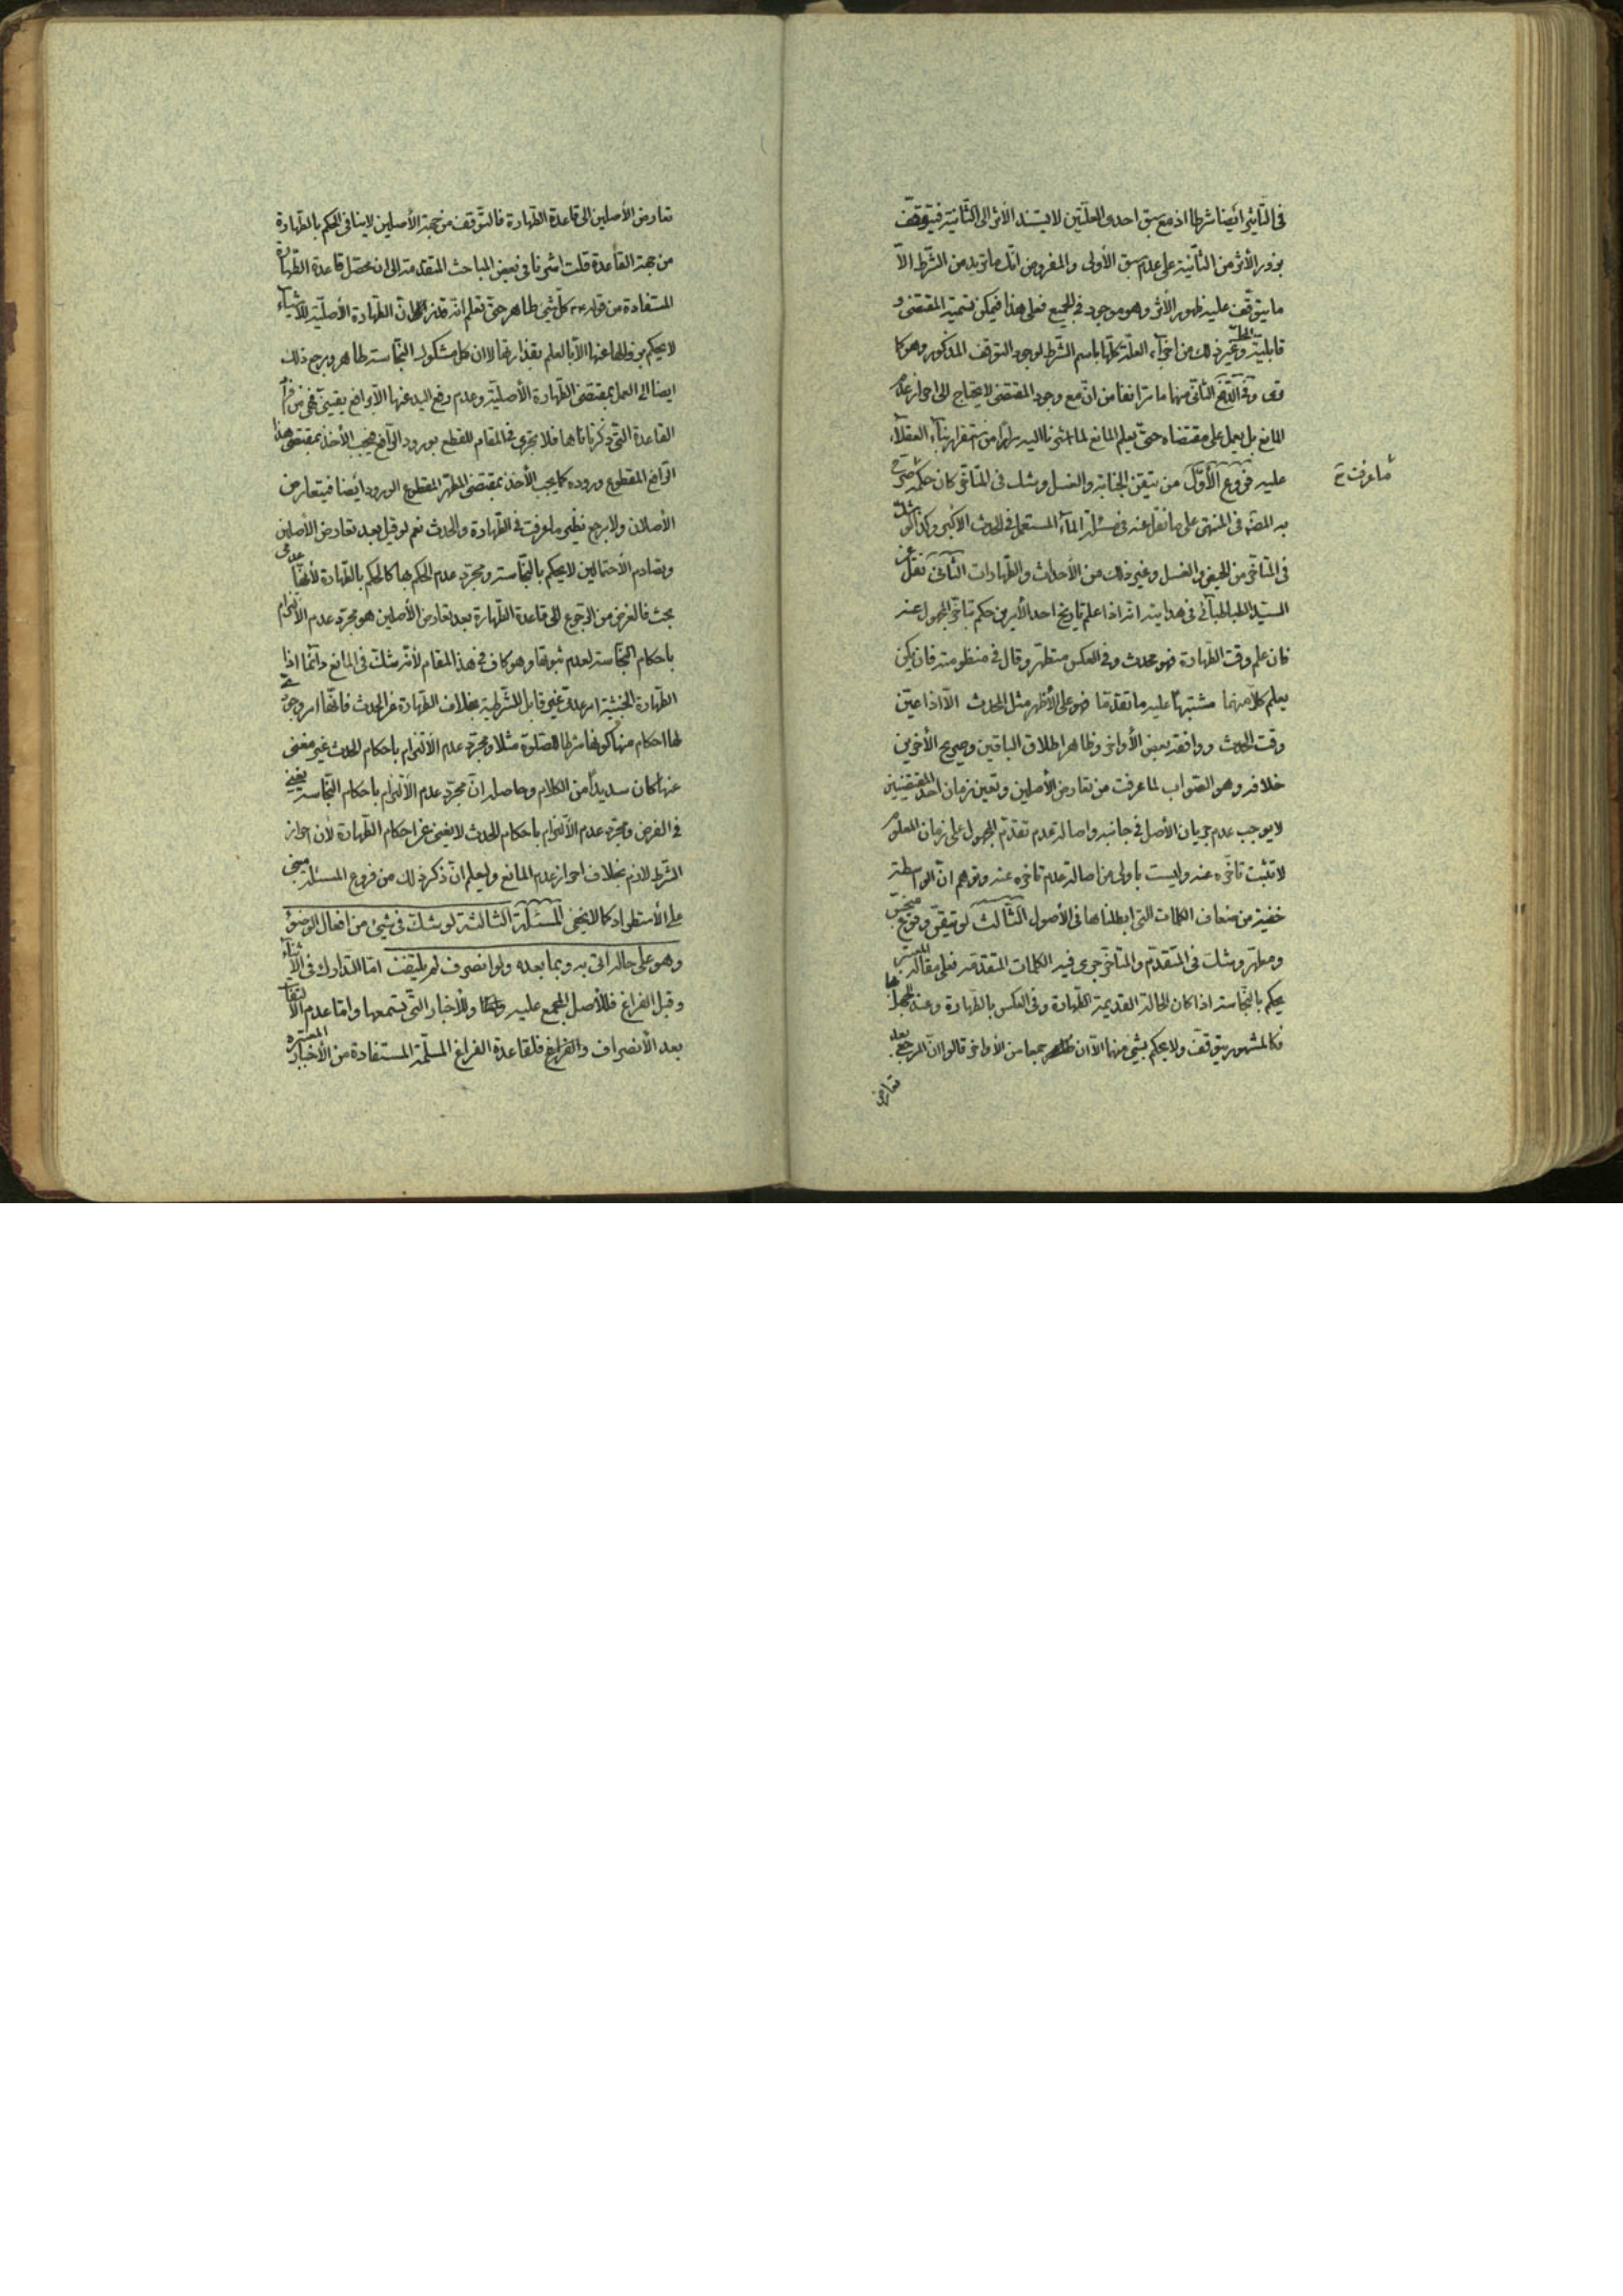 فى التأثير ايضا شرطا اذ مع سبق احدى العلتين لا يستند الأثر الى الثانية فيتوقف
بروز الأثر من الثانية على عدم سبق الأولى والمفروض انك ما تريد من الشرط الا
ما يتوقف عليه ظهور الأثر وهو موجود فى الجميع فعلى هذا فيمكن تسمية المقتضى و
قابلية المحل وغير ذلك من اجزاء العلة كلها باسم الشرط لوجود التوقف المذكور وهو كا
وفى الثانى منها ما مر انفا من ان مع وجود المقتضى لا يحتاج الى احراز عدم
المانع بل يعمل على مقتضاه حتى يعلم المانع لما اشرنا اليه مرارا من استقرار بناء العقلاء
عليه فروع الأول من تيقن الجنابة والغسل وشك فى المتأخر كان حكمه ما عرفت صرح
به المصنف فى المنتهى على ما نقل عنه فى مسئلة الماء المستعمل فى الحدث الأكبر وكذا لو شك
فى المتأخر من الحيض والغسل وغير ذلك من الأحداث والطهارات الثانى نقل عن
السيد الطباطبائى فى هدايته انه اذا علم تاريخ احد الأمرين حكم بتأخر المجهول عنه
فان علم وقت الطهارة فهو محدث وفى العكس متطهر وقال فى منظومته فان يكن
يعلم كلا منهما مشتبها عليه ما تقدما فهو على الأظهر مثل المحدث الا اذا عين
وقت الحدث ووافقه بعض الأواخر وظاهر اطلاق الباقين وصريح الأخرين
خلافه وهو الصواب لما عرفت من تعارض الأصلين وتعين زمان احد المقتضيين
لا يوجب عدم جريان الأصل فى جانبه واصالة عدم تقدم المجهول على زمان المعلوم
لا تثبت تأخره عنه وليست باولى من اصالة عدم تأخره عنه وتوهم ان الواسطة
خفية من ضعاف الكلمات التى ابطلناها فى الأصول الثالث لو تيقن وقوع منجس
ومطهر وشك فى المتقدم والمتأخر جرى فيه الكلمات المتقدمة فعلى مقالة المعتبر
يحكم بالنجاسة اذا كان الحالة القديمة الطهارة وفى العكس بالطهارة وعند الجهل بها
فكالمشهور يتوقف ولا يحكم بشئ منهما الا ان جمعا من الأواخر قالوا ان المرجع بعد
تعارض
ما عرفت
تعارض الأصلين الى قاعدة الطهارة فالتوقف من جهة الأصلين لا ينافى الحكم بالطهارة
من جهة القاعدة قلت اشرنا فى بعض المباحث المتقدمة الى ان محصل قاعدة الطهارة
المستفادة من قوله كل شئ طاهر حتى تعلم انه قذر ان الطهارة الأصلية للأشياء
لا يحكم بزوالها عنها الا بالعلم بقذارتها لا ان كل مشكوك النجاسة طاهر ويرجع ذلك
ايضا الى العمل بمقتضى الطهارة الأصلية وعدم رفع اليد عنها الا برافع يقينى فهى من افراد
القاعدة التى ذكرناها فلا تجرى فى المقام للقطع بورود الرافع فيجب الأخذ بمقتضى هذا
الرافع المقطوع وروده كما يجب الأخذ بمقتضى المطهر المقطوع الورود ايضا فيتعارض
الأصلان ولا مرجع نظير ما عرفت فى الطهارة والحدث نعم لو قيل بعد تعارض الأصلين
وتصادم الأحتمالين لا يحكم بالنجاسة ومجرد عدم الحكم بها كالحكم بالطهارة لأنها عدمى
بحت فالغرض من الرجوع الى قاعدة الطهارة بعد تعارض الأصلين هو مجرد عدم الألتزام
باحكام النجاسة لعدم ثبوتها وهو كاف فى هذا المقام لأنه شك فى المانع دائما اذ
الطهارة الخبثية امر عدمى غير قابل للشرطية بخلاف الطهارة عن الحدث فانها امر وجودى
لها احكام منها كونها شرطا للصلوة مثلا ومجرد عدم الألتزام باحكام الحدث غير مغنى
عنها كان سديدا من الكلام وحاصله ان مجرد عدم الألتزام باحكام النجاسة يغنى
فى الفرض ومجرد عدم الألتزام باحكام الحدث لا يغنى عن احكام الطهارة لأن احراز
الشرط لازم بخلاف احراز عدم المانع وليعلم ان ذكر ذلك من فروع المسئلة مبنى
على الأستطراد كما لا يخفى المسئلة الثالثة لو شك فى شئ من افعال الوضوء
وهو على حاله اتى به وبما بعده ولو انصرف لم يلتفت اما التدارك فى الأثناء
وقبل الفراغ فللأصل المجمع عليه وللأخبار التى تستمعها واما عدم الألتفات
بعد الأنصراف والفراغ فلقاعدة الفراغ المسلمة المستفادة من الأخبار المعتبرة